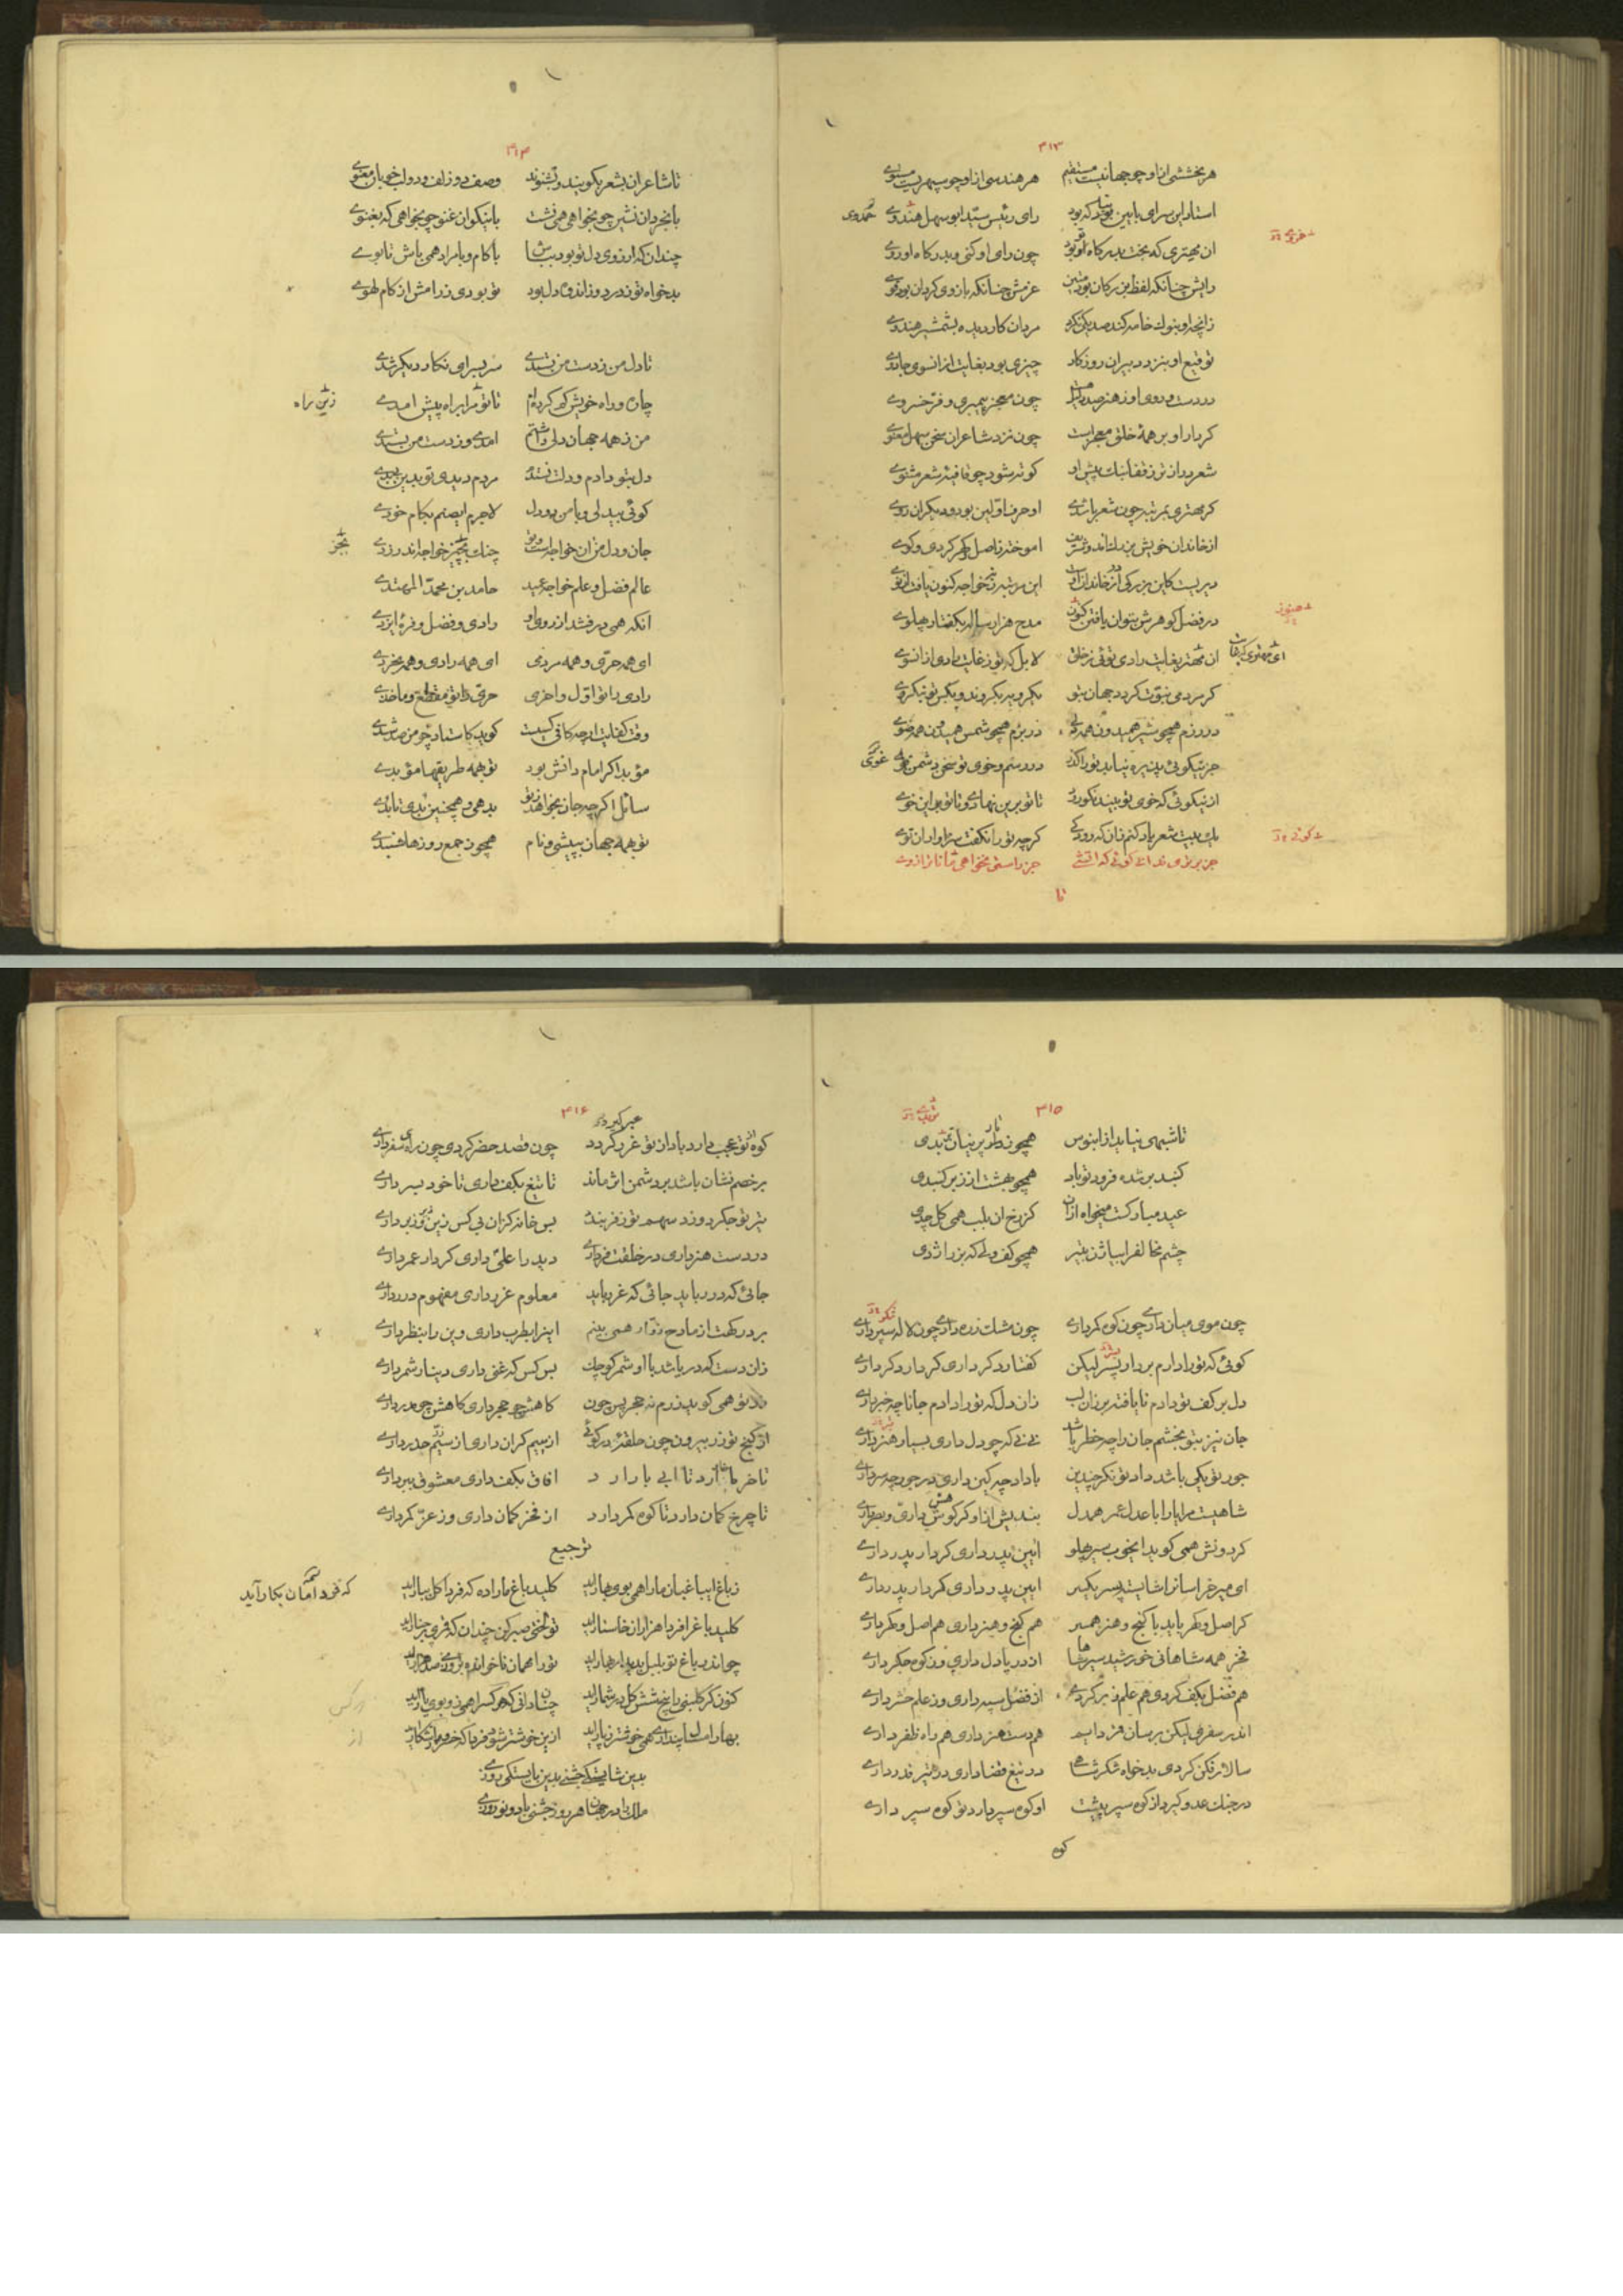 ۳۱۳
هر بخششی از او چو جهانیست مستقیم هر هندسی از او چو سپهریست مستوی
استاد این سرای بایین بود که بود رای رئیس سید ابو سهل حمدوی
ان مهتری که بخت بدرگاه او بود چون رای او کنی و بدرگاه او روی
رایش چنانکه لفظ بزرگان بود متین عزمش چنانکه بازوی گردان بود قوی
زانچه او بنوک خامه کند صد یکی نکرد مردان کار دیده بشمشیر هندوی
توقیع او بنزد دبیران روزگار چیزی بود بغایت از انسوی جادوی
در دست و روی او ز هنر صد چون معجز پیمبری و فر خسروی
کردار او بر همه خلق معجز است چون نزد شاعران سخن سهل معنوی
شعر دراز تر ز قفا نبک پیش او کوته شود چو قافیهٔ شعر مثنوی
گر مهتری بمرتبه چون شعر باشدی او حرف اولین بود و دیگران روی
از خاندان خویش اموخته ز اصل گهر کردی و گوی
دیریست کاین بزرگی از خاندان این مرتبه نه خواجه کنون یافت از نوی
در فضل گوهرش بتوان یافتن کنون مدح هزار ساله بگفتار پهلوی
ان مهتر بغایت رادی توئی ز خلق لا بل که تو ز غایت رادی از انسوی
گر مردمی نبوت گردد جهان بتو یکرویه بگروند و بیکس تو نگروی
در رزم همچو شیر همیدون همه دلی در بزم همچو شمس همیدون همه ضوی
جز نیکوئی پذیره نیاید تو را در رسم و خوی تو سخن دشمن
از نیکوئی که خوی تو بینند تا تو برین نهادی و تا تو بر این خوی
یک بیت شعر یاد کنم زان که رودکی گرچه تو را نگفت سزاوار ان توی
جز برتری ندانی گوئی که اتشی جز راستی نخواهی مانا ترازوی
تا
۳۱۴
تا شاعران بشعر بگویند و بشنوند وصف دو زلف و دو لب خوبان معنوی
با بخردان نشین چو بخواهی همی نشست با نیکوان غنو چو بخواهی که بغنوی
چندان که ارزوی دل تو بود بباش با کام و با مراد همی باش تا بوی
بدخواه تو ز درد و ز اندوه دل بود تو بوری ز رامش از کام لهوی
تا دل من ز دست من بستدی سر بسر ای نگار دیگر شدی
چاره و راه خویش گم کرده‌ام تا تو مرا براه پیش امدی
من ز همه جهان دلی داشتم امدی و ز دست من بستدی
دل بتو دادم و دلت نستدم مردم دیدی تو بدین بیبدی
گوئی بیدلی و با من دو دل لاجرم ای صنم بکام خودی
جان و دل من ان خواجه است و تو چنگ بچیز خواجه اندر زدی
عالم فضل و علم خواجه عمید حامد بن محمد المهتدی
انکه همی درفشد از روی او رادی و فضل و فرهٔ ایزدی
ای همه حری و همه مردمی ای همه رادی و همه بخردی
رادی را تو اول و اخری حری را تو مقطع و مأخذی
وقت کفایت ار چه کافی کسیست گوید کاستاد چو من صد شدی
مؤبد اگر امام دانش بود تو همه طریقها مؤبدی
سائل اگر چه جان بخواهد ز تو بدهی و همچنین بدی تا بدی
تو همه جهان ببیشی و نام همچون جمع روزها شنبدی
۳۱۵
تا شبهی نیاید از ابنوس همچون نار پرنیان
گنبد بر شده فرود تو باد همچو بهشت از زبر گنبدی
عید مبارکست می خواه از ان کز رخ ان بلب همی گل چدی
چشم مخالفرا بیاژن بتیر همچو کف ولی که بزر اژدی
چون موی میان داری چون کوه کمر داری چون مشک زره داری چون لاله سپر داری
گوئی که تو را دارم بردار پسر لیکن گفتار دگر داری کردار دگر داری
دل بر کف تو دادم نا یافته بر زان لب زان دل که تو را دادم جانا چه خبر داری
جان نیز بتو بخشم جان را چه خطر باشد نی نی که چو دل داری بسیار هنر داری
جور تو یکی باشد داد تو نگر چندین با داد چه کین داری در جور چه سر داری
شاهیست مرا یارا با عدل عمر همدل بندیش از او گر گوش داری و بصر داری
گردونش همی گوید ای خوب سیر پهلو ایین پدر داری کردار پدر داری
ای میر خراسانرا شایسته پسر یکسر ایین پدر داری کردار پدر داری
گر اصل و گهر باید با گنج و هنر همسر هم گنج و هنر داری هم اصل و گهر داری
فخر همه شاهانی خورشید سپر شاها از در یا دل داری وز کوه جگر داری
هم فضل بکف کردی هم علم ز بر کردی از فضل سپه داری وز علم حشر داری
اندر سفری لیکن برسان هم دست هنر داری هم راه ظفر داری
سالار فکن کردی بدخواه شکر شاها در تیغ قضا داری در تیر قدر داری
در جنگ عدو گیرد از کوه سپر پیشت او کوه سپر دارد تو کوه سپر داری
کوه
۳۱۶
کوه از تو عجب دارد باد از تو غرر گردد چون قصد حضر کردی چون رای سفر داری
بر خصم نشان باشد بر دشمن اثر ماند تا تیغ بکف داری تا خود بسر داری
تیر تو جگر دوزد سهم تو ز فر بندد بس خانه کزان بی کس زین زیر و زبر داری
در دست هنر داری در خلقت فر داری دید را علی داری کردار عمر داری
جائی که درر باید جائی که غرر باید معلوم غرر داری مفهوم درر داری
بر درگهت از مادح زوار همی بینم اینرا بطرب داری وین را بنظر داری
زان دست که در باشد با او شمر کوچک بس کس که غنی داری دینار شمر داری
بلا تو همی گوید زرم نه حجر پس چون کاهش چو حجر داری کاهش چو مدر داری
از گنج تو زر بیرون چون حلقه در گوئی از بیم کران داری از سیم حذر داری
تا خر ما نار ارد تا ابی بار ارد افاق بکف داری معشوق ببر داری
تا چرخ کمان دارد تا کوه کمر دارد از فخر کمان داری وز عز کمر داری
ترجیع
ز باغ ای باغبان ما را همی بوی بهار اید کلید باغ ما را ده که فردا کان بکار آید
کلید باغ را فردا هزاران خواستار اید تو لختی صبر کن چندان که قمری بر چنار اید
چو اندر باغ تو بلبل بدیدار بهار اید تو را مهمان ناخوانده بروزی صد هزار اید
کنون گر گلبنی را پنج شش گل در شمار اید چنان دانی که هر کس را همی زو بوی یار اید
بهار امسال پنداری همی خوشتر ز پار اید ازین خوشتر شود فردا که خسرو از شکار اید
بدین شایستگی جشنی بدین بایستگی روزی
ملک را در جهان هر روز جشنی باد و نوروزی